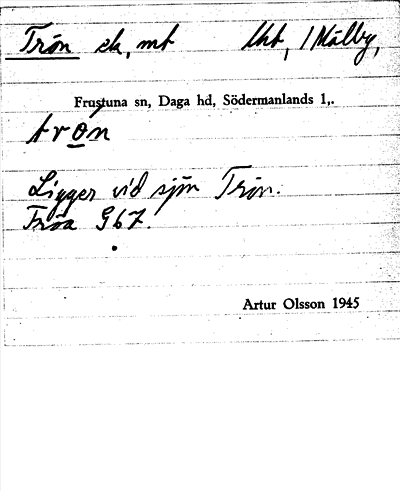 Trön sk, mt lht, 1 Mälby,
Frustuna sn, Daga hd, Södermanlands l,.
trọ̄́n
Ligger vid sjön Trön.
Fröa 967.
Artur Olsson 1945